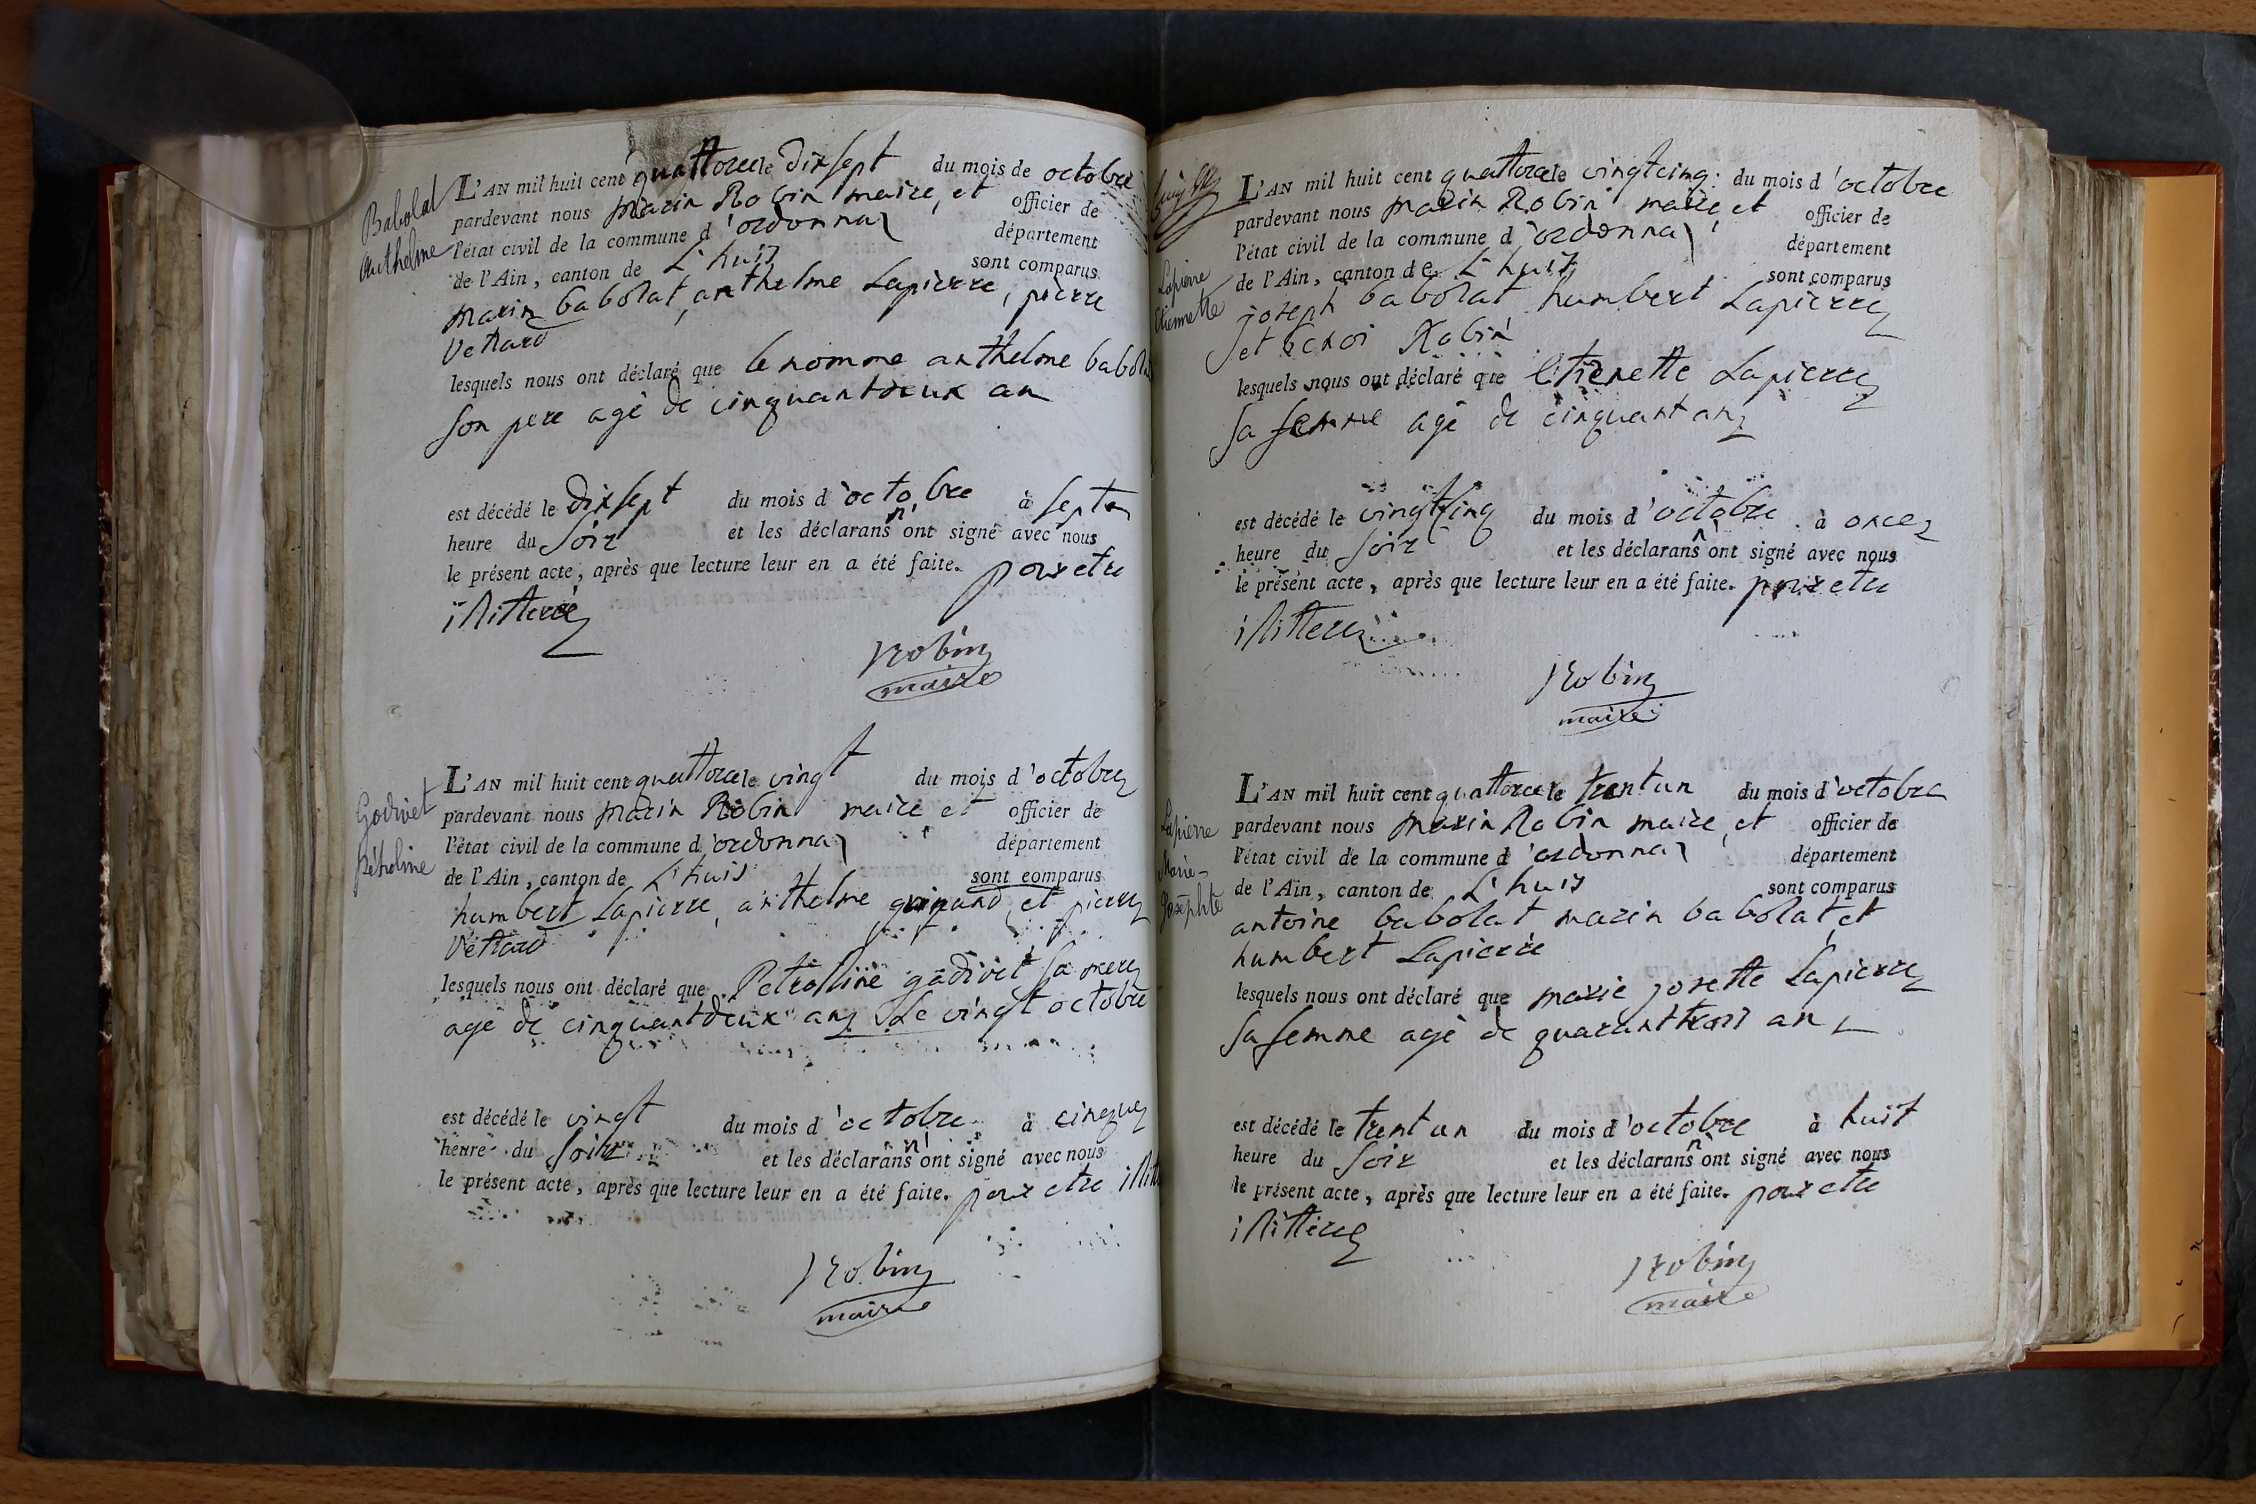 Babolat
Anthelme
L'AN mil huit cent quattorce le dixsept du mois de octobre
pardevant nous marin Robin maire, et officier de
l'état civil de la commune d'ordonnaz département
de l'Ain, canton de L'huis sont comparus
marin babolat, anthelme Lapierre, pierre
Vettard
lesquels nous ont déclaré que le nomme anthelme
son pere agé de cinquantdeux an
est décédé le dixsept du mois d'octobre à septe
heure du soir et les déclarans n'ont signé avec nous
le présent acte, après que lecture leur en a été faite. pour etre
illitteré
Robin
maire
Godivet
Pétroline
L'AN mil huit cent quattorce le vingt du mois d'octobre
pardevant nous marin Robin maire et officier de
l'état civil de la commune d'ordonnaz département
de l'Ain, canton de L'huis sont comparus
humbert Lapierre, anthelme guinand et pierre
Vettard
lesquels nous ont déclaré que Petrolline godivet sa mere
agé de cinquantdeux anz Le vingt octobre
est décédé le vingt du mois d'octobre à cinque
heure du soir et les déclarans n'ont signé avec nous
le présent acte, après que lecture leur en a été faite. pour etre
Robin
maire
Lapierre
Etiennette
L'AN mil huit cent quattorce le vingtcinq du mois d'octobre
pardevant nous marin Robin maire, et officier de
l'état civil de la commune d'ordonnaz département
de l'Ain, canton de L'huis sont comparus
joseph babolat humbert Lapierre
et benoi Robin
lesquels nous ont déclaré que Etienette Lapierre
sa femme agé de cinquant anz
est décédé le vingtcinq du mois d'octobre à once
heure du soir et les déclarans n ont signé avec nous
le présent acte, après que lecture leur en a été faite. pour etre
illittere
Robin
maire
Lapierre
Marie-
Josephte
L'AN mil huit cent quattorce le trentun du mois d'octobre
pardevant nous marin Robin maire, et officier de
l'état civil de la commune d'ordonnaz département
de l'Ain, canton de L'huis sont comparus
antoine babolat marin babolat, et
humbert Lapierre
lesquels nous ont déclaré que marie josette Lapierre
sa femme agé de quaranttrois an
est décédé le trentun du mois d'octobre à huit
heure du soir et les déclarans n'ont signé avec nous
le présent acte, après que lecture leur en a été faite. pour etre
illittere
Robin
maire